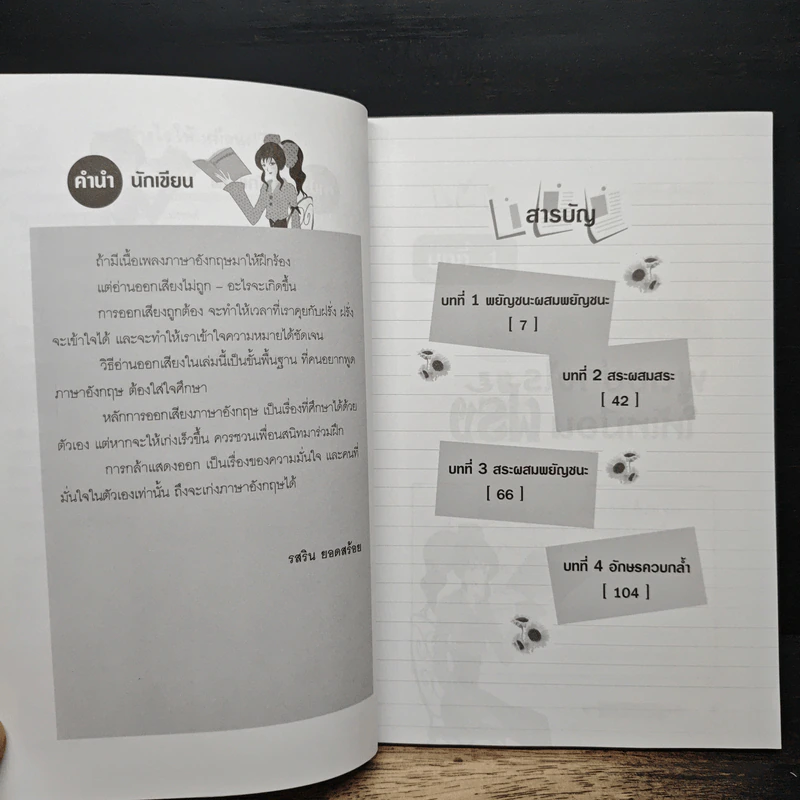 คำนำ นักเขียน
ถ้ามีเนื้อเพลงภาษาอังกฤษมาให้ฝึกร้อง
แต่อ่านออกเสียงไม่ถูก – อะไรจะเกิดขึ้น
การออกเสียงถูกต้อง จะทำให้เวลาที่เราคุยกับฝรั่ง ฝรั่ง
จะเข้าใจได้ และจะทำให้เราเข้าใจความหมายได้ชัดเจน
วิธีอ่านออกเสียงในเล่มนี้เป็นขั้นพื้นฐาน ที่คนอยากพูด
ภาษาอังกฤษ ต้องใส่ใจศึกษา
หลักการออกเสียงภาษาอังกฤษ เป็นเรื่องที่ศึกษาได้ด้วย
ตัวเอง แต่หากจะให้เก่งเร็วขึ้น ควรชวนเพื่อนสนิทมาร่วมฝึก
การกล้าแสดงออก เป็นเรื่องของความมั่นใจ และคนที่
มั่นใจในตัวเองเท่านั้น ถึงจะเก่งภาษาอังกฤษได้
รสริน ยอดสร้อย
สารบัญ
บทที่ 1 พยัญชนะผสมพยัญชนะ
[ 7 ]
บทที่ 2 สระผสมสระ
[ 42 ]
บทที่ 3 สระผสมพยัญชนะ
[ 66 ]
บทที่ 4 อักษรควบกล้ำ
[ 104 ]